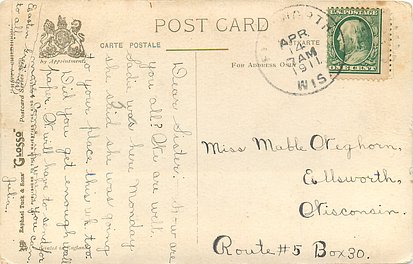 POST CARD
CARTE POSTALE
POSTKARTE
For Address Only
by Appointment
APR
14
7AM
1911
WIS
ONE CENT
Dear Sister: How are
you all? We are well.
Sadie was here Monday
she said she was going
to your place this wk. too.
Did you get enough wall
paper. Or will have to send for
Julia.
Easter
to all
"GLOSSO"
Raphael Tuck & Sons'
Postcard Series
Printed in England
Miss Mable Weghorn,
Ellsworth,
Wisconsin.
Route #5 Box 30.